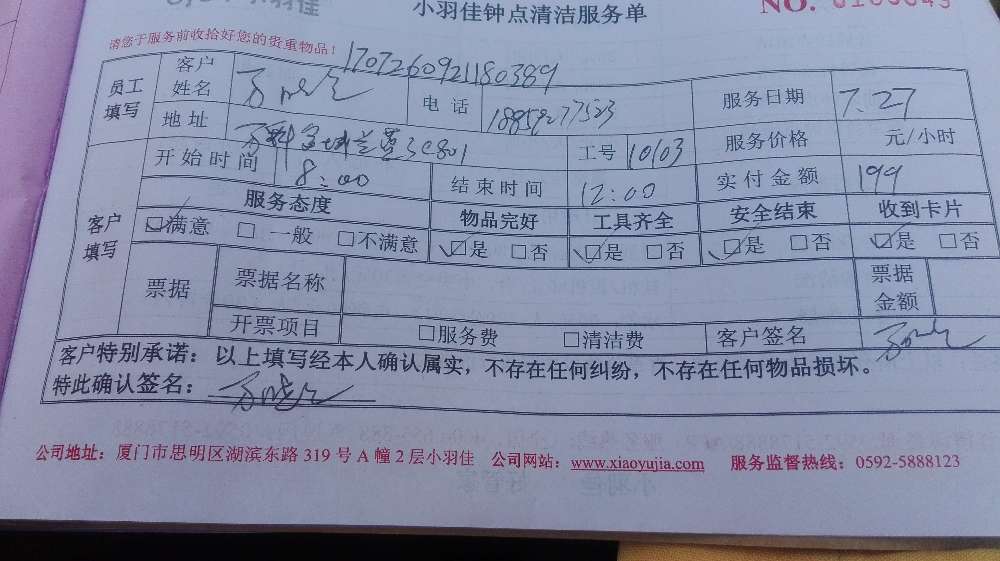 小羽佳
小羽佳钟点清洁服务单
NO.
请您于服务前收拾好您的贵重物品！
1707260921180389
员工填写 客户姓名 电话 18859277523 服务日期 7.27
地址 3C801 工号 10103 服务价格 元/小时
客户填写 开始时间 8:00 结束时间 12:00 实付金额 199
服务态度 物品完好 工具齐全 安全结束 收到卡片
☑满意 □一般 □不满意 ☑是 □否 ☑是 □否 ☑是 □否 ☑是 □否
票据 票据名称 票据金额
开票项目 □服务费 □清洁费 客户签名
客户特别承诺：以上填写经本人确认属实，不存在任何纠纷，不存在任何物品损坏。
特此确认签名：
公司地址：厦门市思明区湖滨东路 319 号 A 幢 2 层小羽佳 公司网站：www.xiaoyujia.com 服务监督热线：0592-5888123